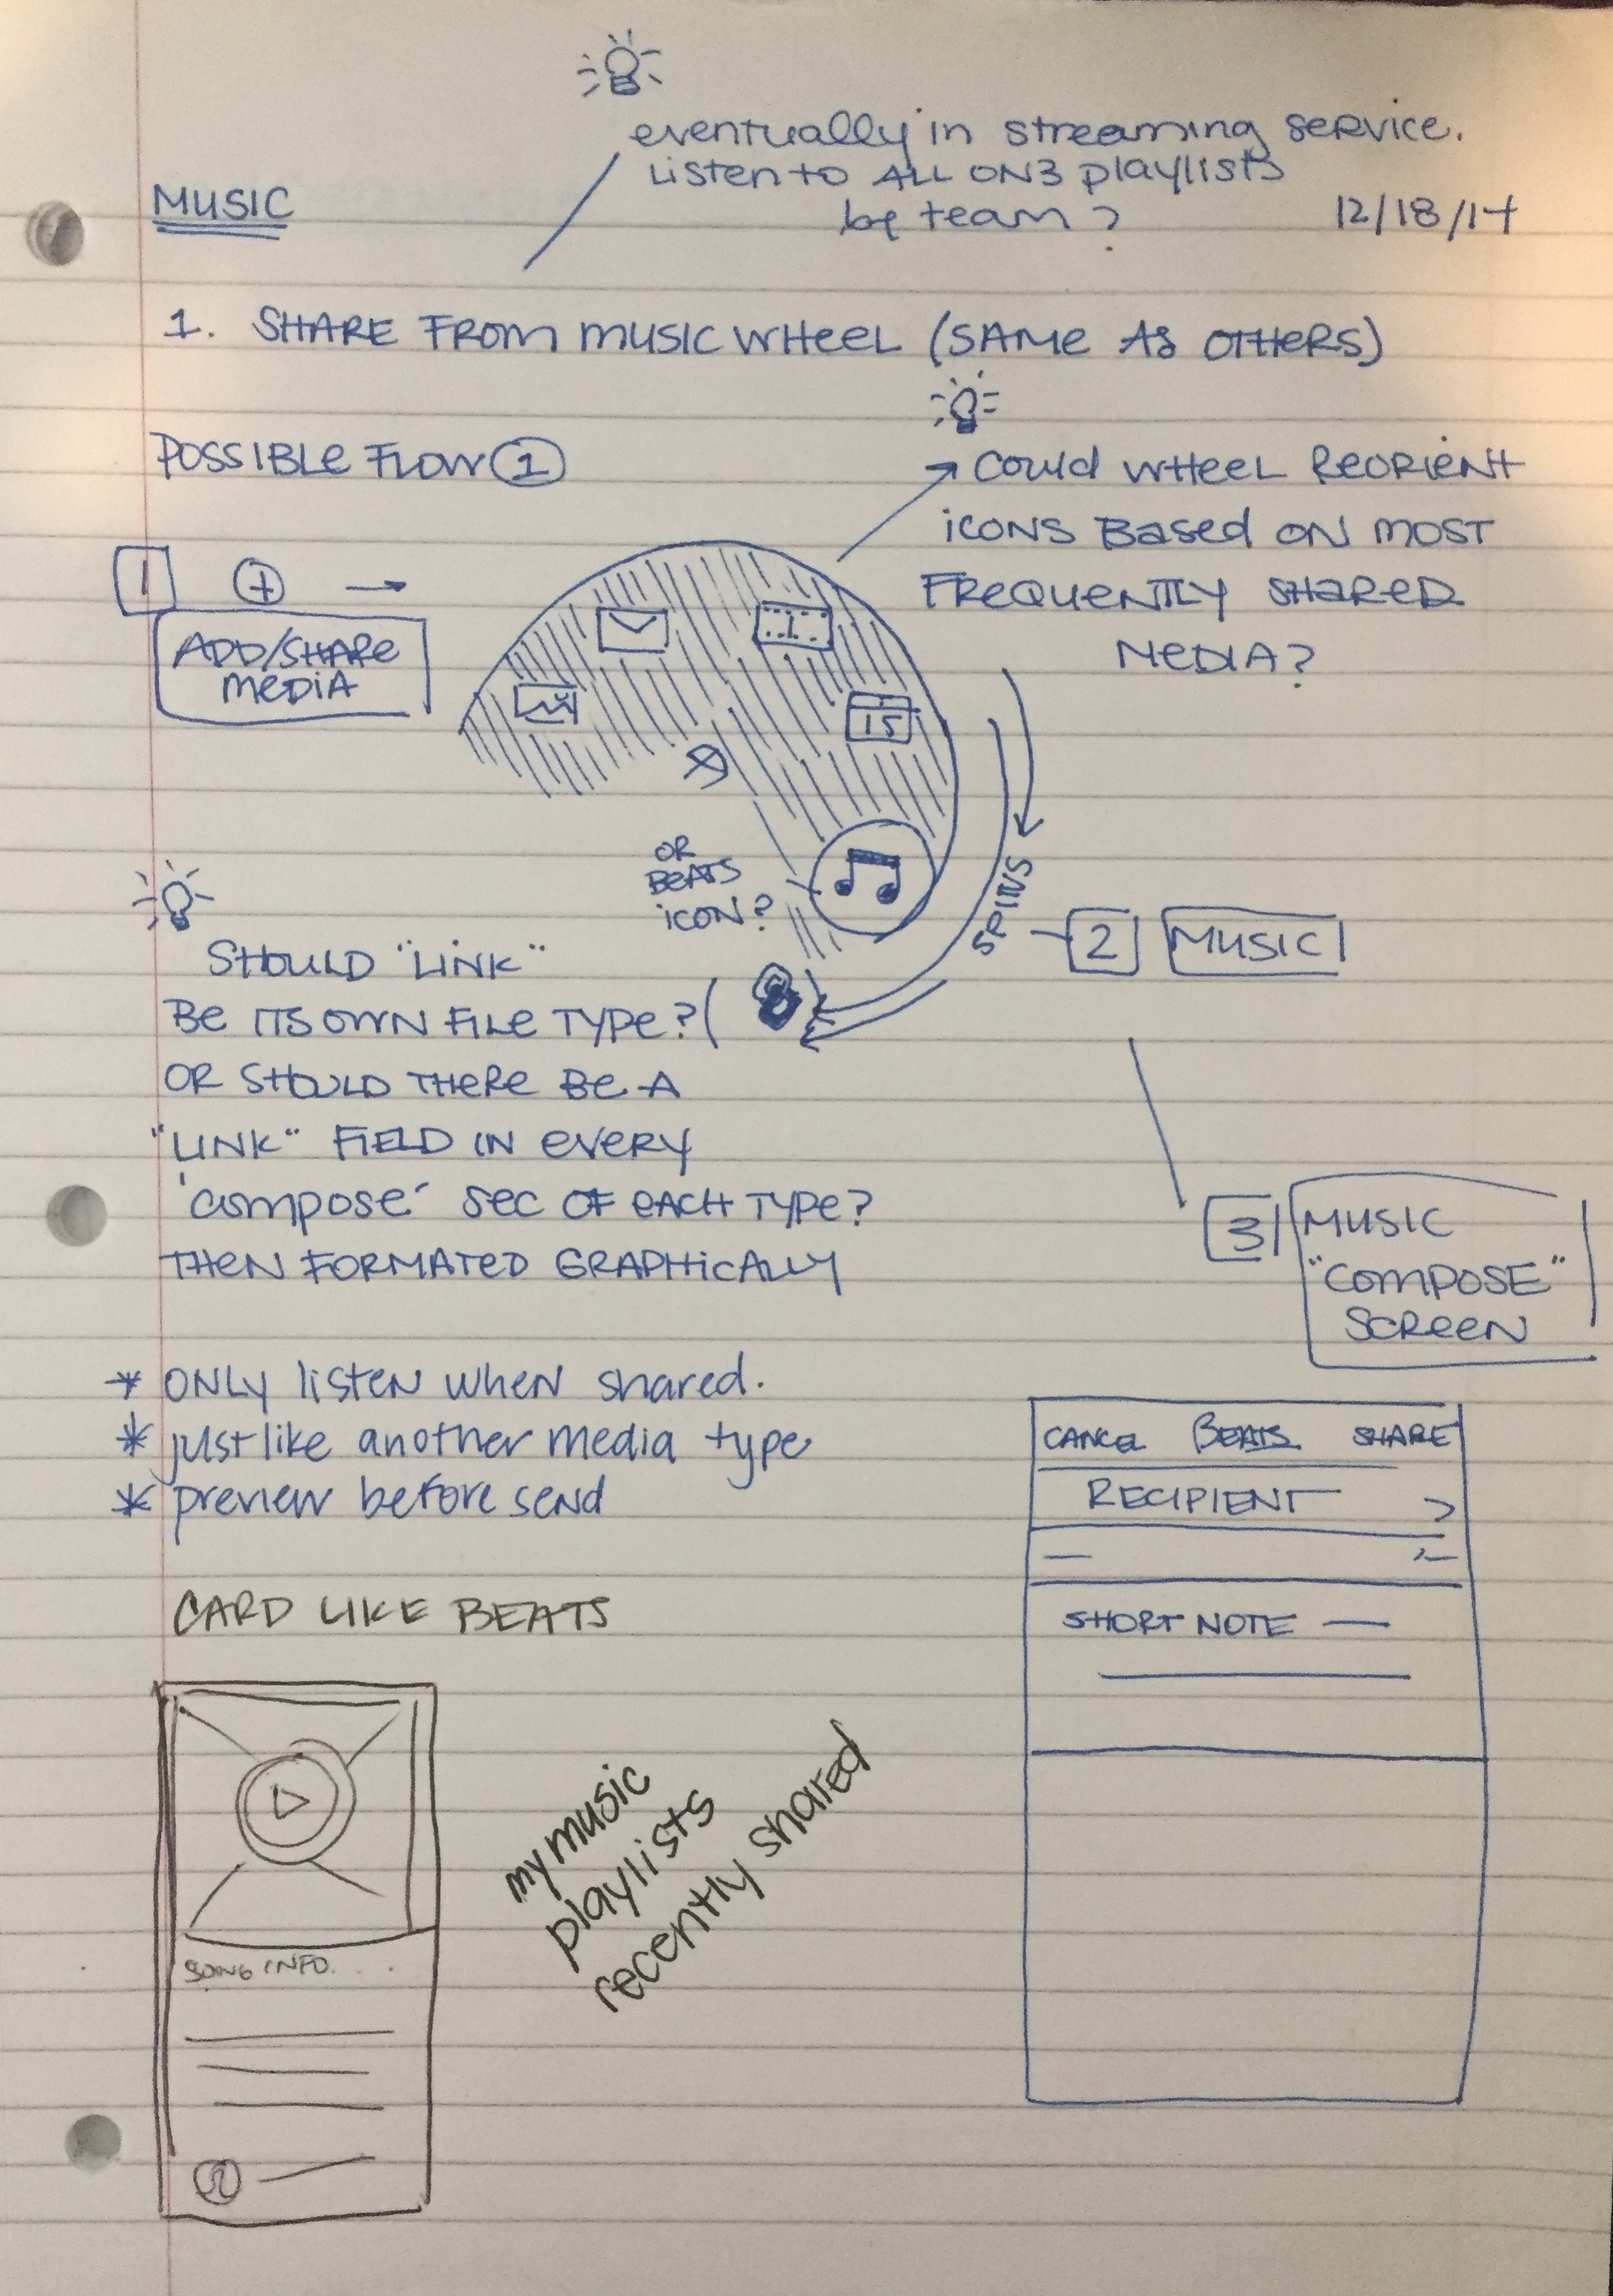 eventually in streaming service.
Listen to ALL ON3 playlists
by team?
MUSIC
12/18/14
1. SHARE FROM MUSIC WHEEL (SAME AS OTHERS)
POSSIBLE FLOW 1
Could WHEEL REORIENT
ICONS Based ON MOST
FREQUENTLY SHARED
MEDIA?
1 + →
ADD/SHARE
MEDIA
15
OR
BEATS
ICON?
SPINS
2 MUSIC
SHOULD "LINK"
BE ITS OWN FILE TYPE? ( )
OR SHOULD THERE BE A
"LINK" FIELD IN EVERY
'compose' SEC OF EACH TYPE?
THEN FORMATED GRAPHICALLY
3 MUSIC
"COMPOSE"
SCREEN
* ONLY listen when shared.
* just like another media type
* preview before send
CANCEL BEATS SHARE
RECIPIENT >
SHORT NOTE —
CARD LIKE BEATS
SONG INFO...
my music
playlists
recently shared